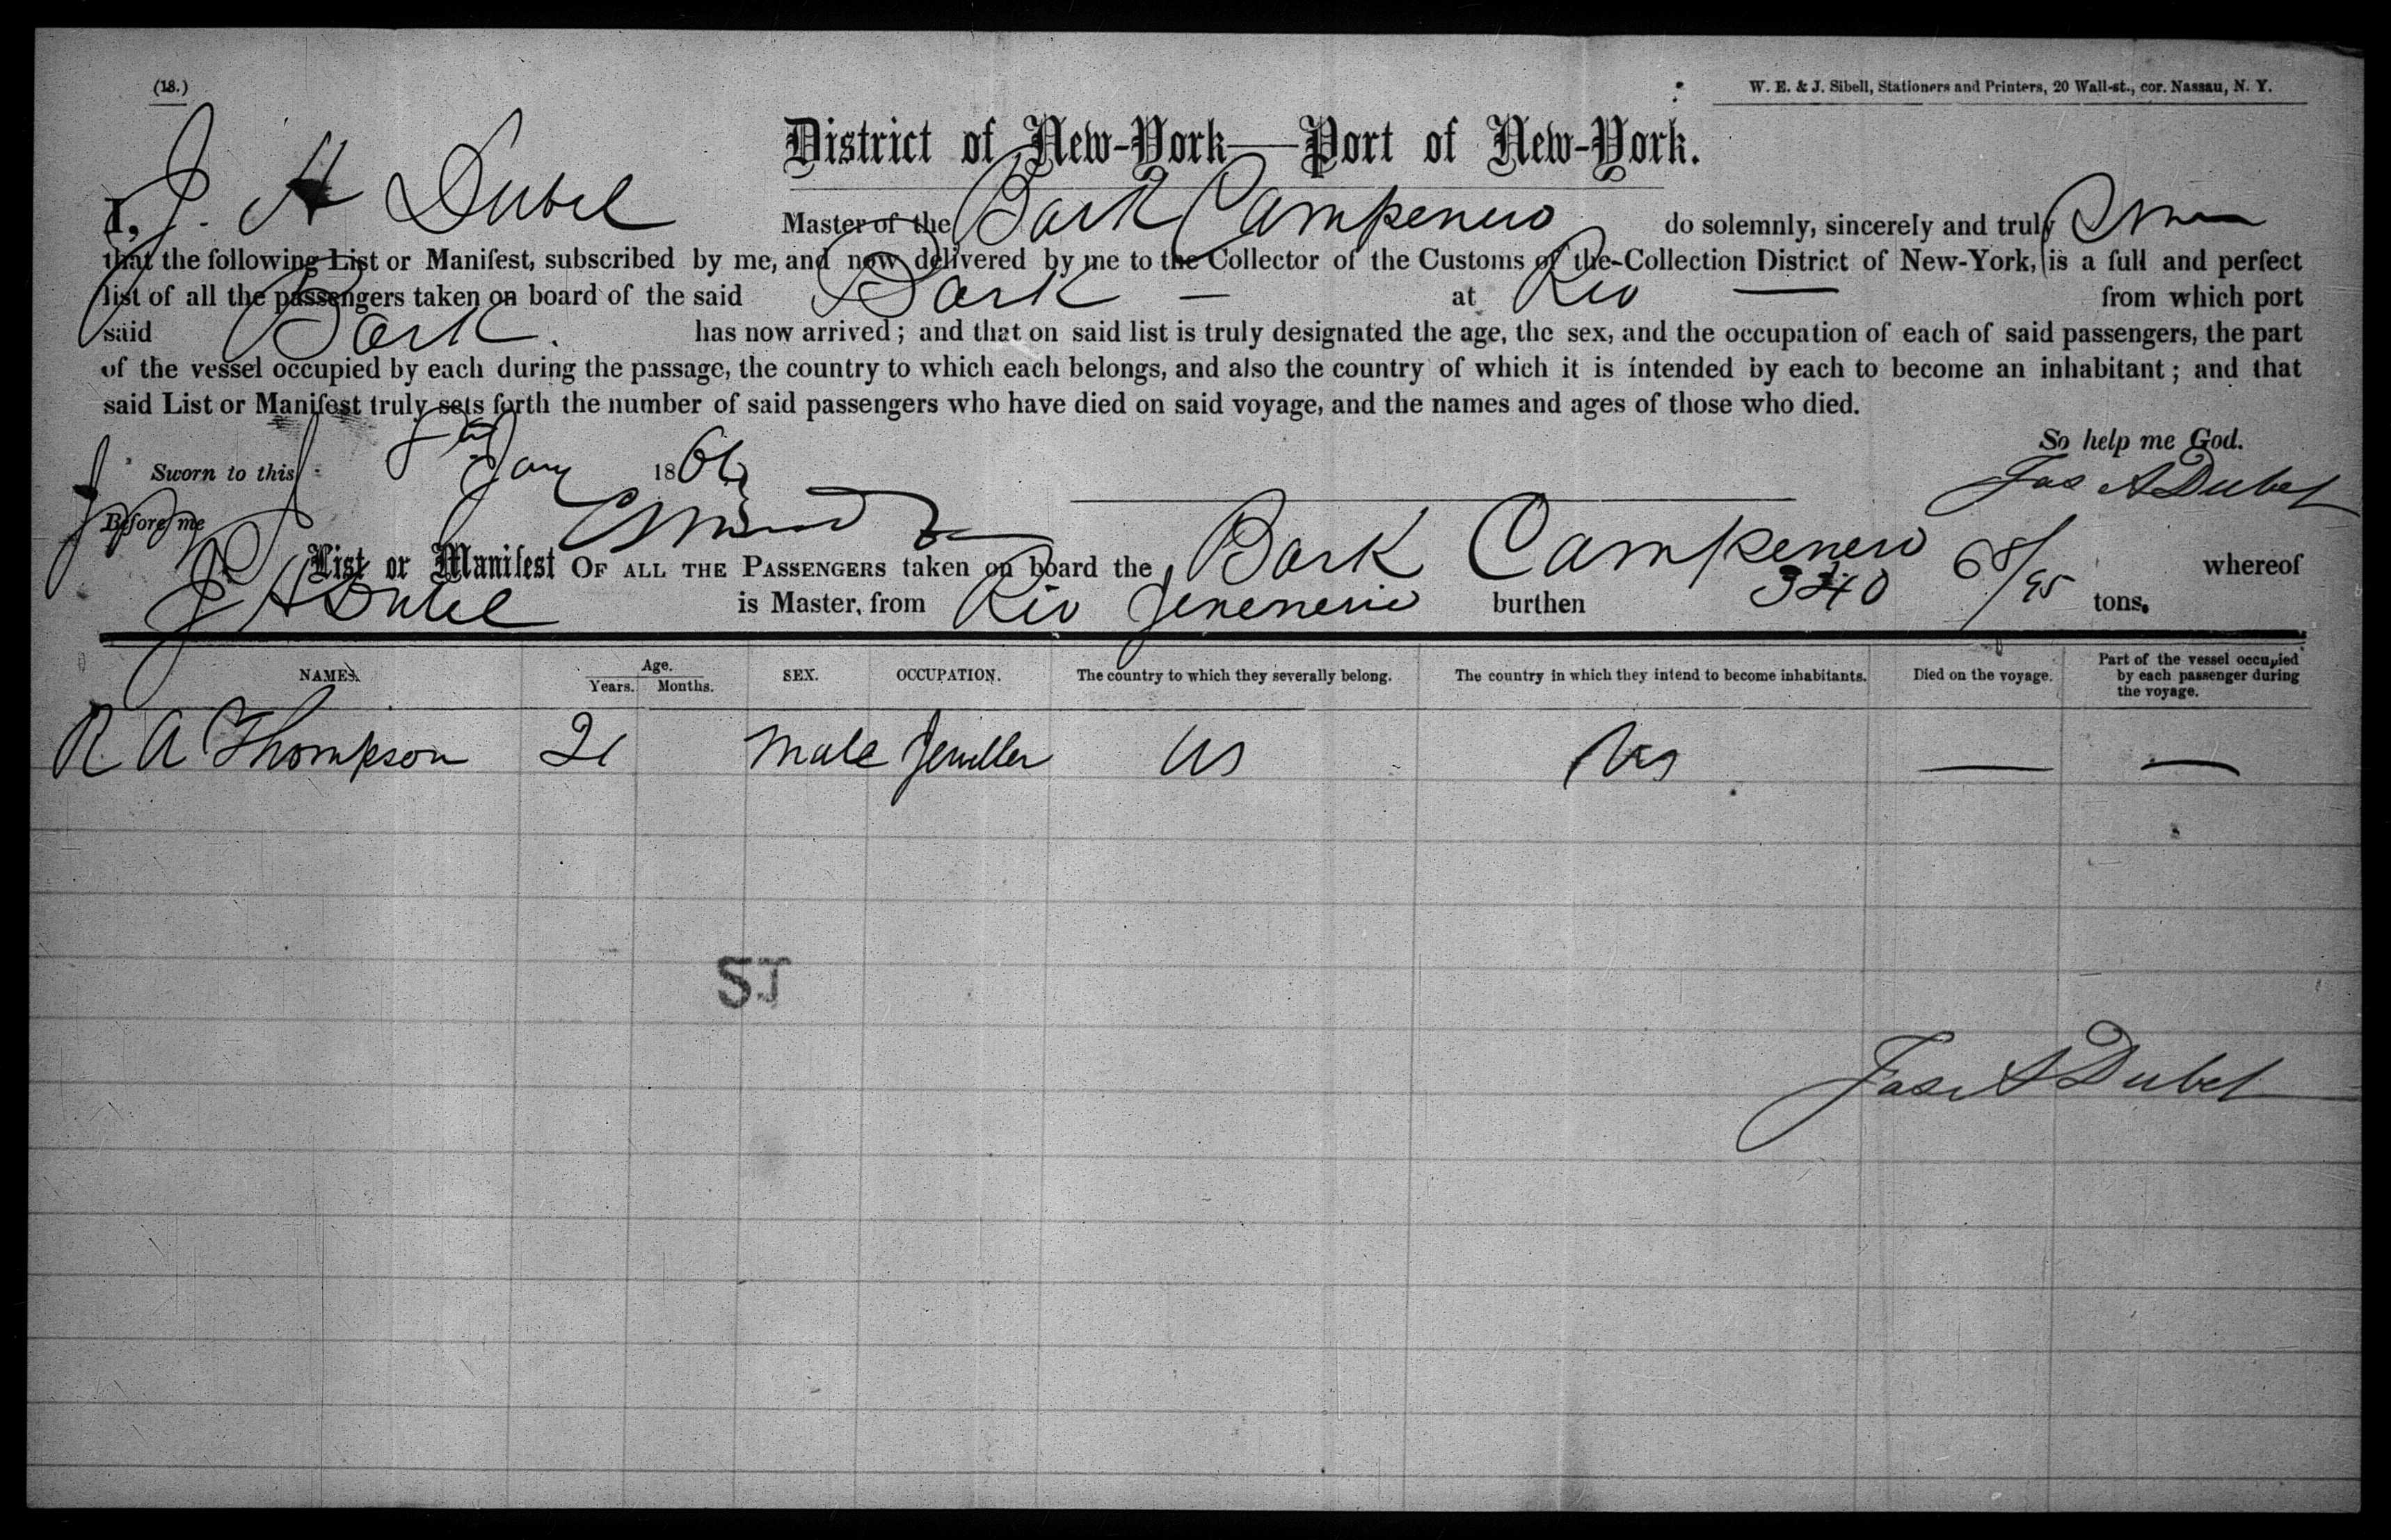 (18.)
W. E. & J. Sibell, Stationers and Printers, 20 Wall-st., cor. Nassau, N. Y.
District of New-York—Port of New-York.
I, J. A Dubel Master of the Bark Campenero do solemnly, sincerely and truly
that the following List or Manifest, subscribed by me, and now delivered by me to the Collector of the Customs of the Collection District of New-York, is a full and perfect
list of all the passengers taken on board of the said Bark — at Rio — from which port
said Bark. has now arrived; and that on said list is truly designated the age, the sex, and the occupation of each of said passengers, the part
of the vessel occupied by each during the passage, the country to which each belongs, and also the country of which it is intended by each to become an inhabitant; and that
said List or Manifest truly sets forth the number of said passengers who have died on said voyage, and the names and ages of those who died.
So help me God.
Sworn to this Jany 186
Jas A Dubel
Before me
List or Manifest OF ALL THE PASSENGERS taken on board the Bark Campenero whereof
J A Dubel is Master, from Rio Jenenerio burthen 340 68/95 tons.
NAMES. Age. Years. Months. SEX. OCCUPATION. The country to which they severally belong. The country in which they intend to become inhabitants. Died on the voyage. Part of the vessel occupied by each passenger during the voyage.
R A Thompson 21 Male Jeweller US US — —
SJ
Jas A Dubel